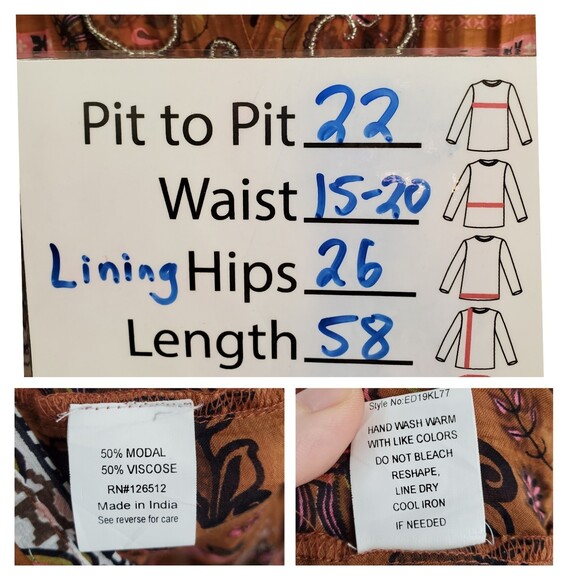 Pit to Pit 22
Waist 15-20
Lining Hips 26
Length 58
50% MODAL
50% VISCOSE
RN#126512
Made in India
See reverse for care
Style No:ED19KL77
HAND WASH WARM
WITH LIKE COLORS
DO NOT BLEACH
RESHAPE,
LINE DRY
COOL IRON
IF NEEDED